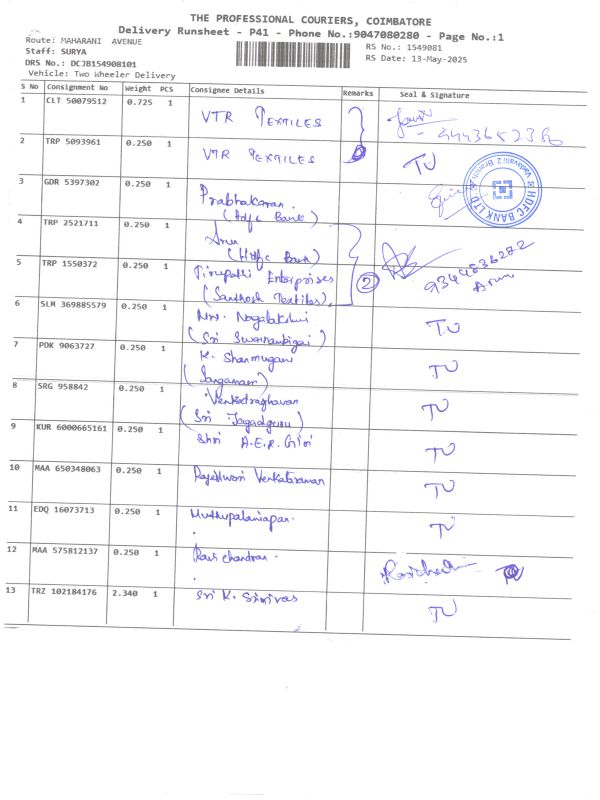 THE PROFESSIONAL COURIERS, COIMBATORE
Delivery Runsheet - P41 - Phone No.:9047080280 - Page No.:1
Route: MAHARANI AVENUE
Staff: SURYA
DRS No.: DCJB154908101
Vehicle: Two Wheeler Delivery
RS No.: 1549081
RS Date: 13-May-2025
S No Consignment No Weight PCS Consignee Details Remarks Seal & Signature
1 CLT 50079512 0.725 1 VTR TEXTILES
2 TRP 5093961 0.250 1 VTR TEXTILES TU
3 GDR 5397302 0.250 1 Prabhakaran.
(Hdfc Bank)
HDFC BANK LTD
4 TRP 2521711 0.250 1 Arun
(Hdfc Bank)
9344836282
Arun
5 TRP 1550372 0.250 1 Tirupatti Enterprises
(Santhosh Textiles)
2
6 SLM 369885579 0.250 1 Nagalakshmi
(Sri Swarnambigai) TU
7 PDK 9063727 0.250 1 K. Shanmugam
(Sangamam) TU
8 SRG 958842 0.250 1 Venkatraghavan
(Sri Jagadguru) TU
9 KUR 6000665161 0.250 1 Shri A.E.R. Giri TU
10 MAA 650348063 0.250 1 Rajeshwari Venkataraman TU
11 EDQ 16073713 0.250 1 Muthupalaniapan. TU
12 MAA 575812137 0.250 1 Ravi chandran. Ravichandran
13 TRZ 102184176 2.340 1 Sri K. Srinivas TU